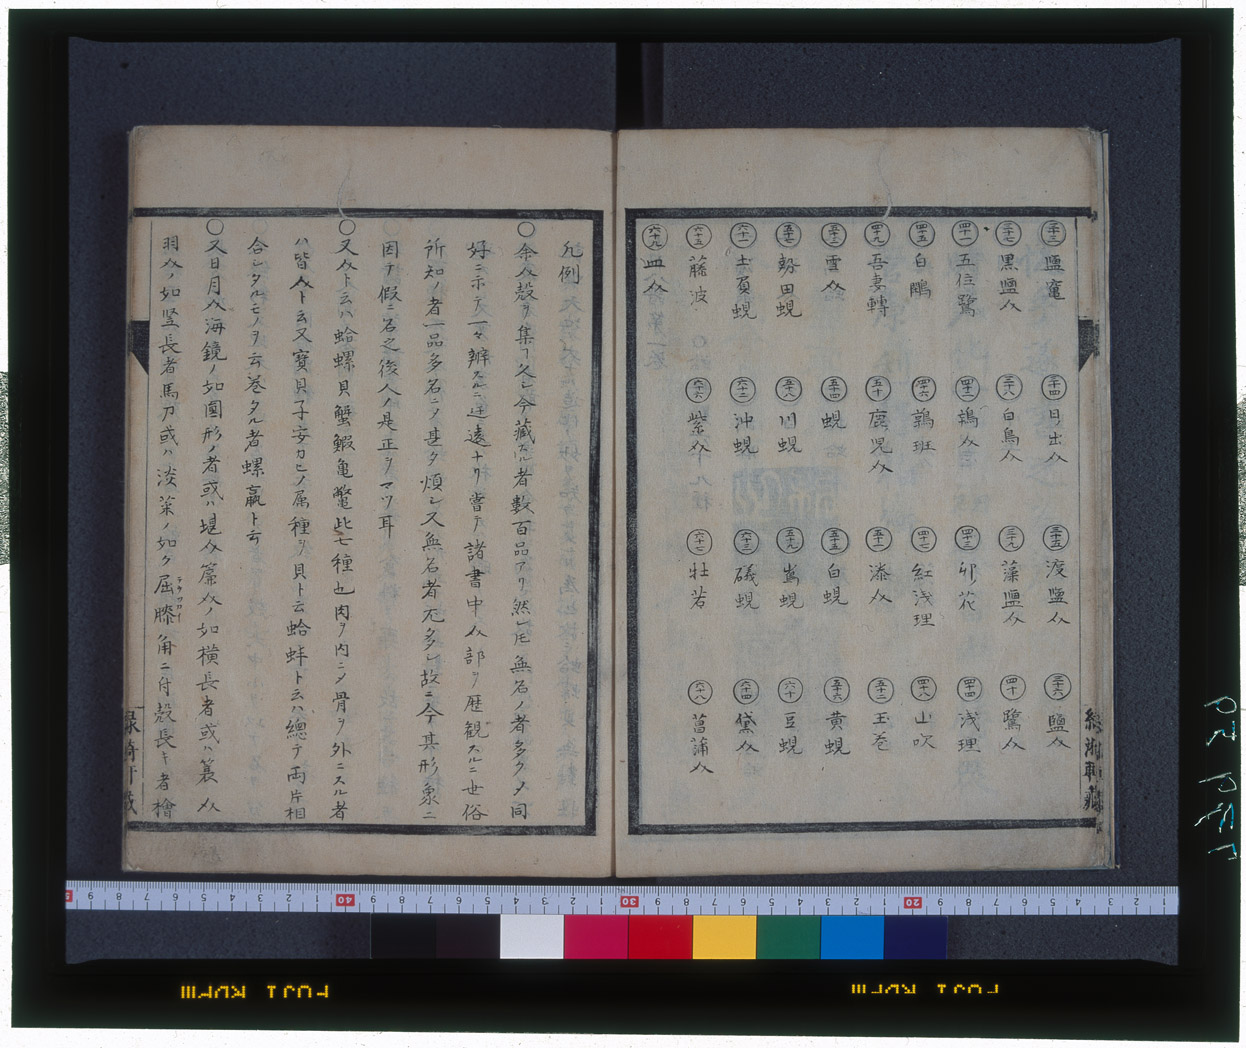 三十三 鹽竃
三十四 日ノ出介
三十五 渡鹽介
三十六 鹽介
三十七 黒鹽介
三十八 白鳥介
三十九 藻鹽介
四十 鷺介
四十一 五位鷺
四十二 鶉介
四十三 卯花
四十四 浅理
四十五 白鴎
四十六 鶉班
四十七 紅浅理
四十八 山吹
四十九 吾妻轉
五十 鹿児介
五十一 漆介
五十二 玉巻
五十三 雲介
五十四 蜆
五十五 白蜆
五十六 黄蜆
五十七 勢田蜆
五十八 川蜆
五十九 蜆
六十 豆蜆
六十一 土負蜆
六十二 沖蜆
六十三 礒蜆
六十四 黛介
六十五 藤波
六十六 紫介
六十七 牡若
六十八 菖蒲介
六十九 血介
凡例
〇余介殻ヲ集ㇷ久シ今藏スル者數百品アリ然レ𪜈無名ノ者多クメ同
好ニ示テ一々辨スルニ迂遠ナリ嘗テ諸書中介部ヲ歴観スルニ世俗
所知ノ者一品多名ニメ甚タ煩シ又無名者冘多シ故ニ今其形象ニ
因テ假ニ名之後人ノ是正ヲマツ耳
〇又介ト云ハ蛤螺貝蟹鰕亀鼈此七種也肉ヲ内ニメ骨ヲ外ニスル者
ハ皆介ト云又寶貝子安カヒノ属種ヲ貝ト云蛤蚌ト云ハ總テ両片相
合シタルモノヲ云巻タル者螺蠃ト云
〇又日月介海鏡ノ如圓形ノ者或ハ堤介簾介ノ如横長者或ハ簑介
羽介ノ如竪長者馬刀或ハ淡菜ノ如ク屈膝角ニ付殻長キ者檜